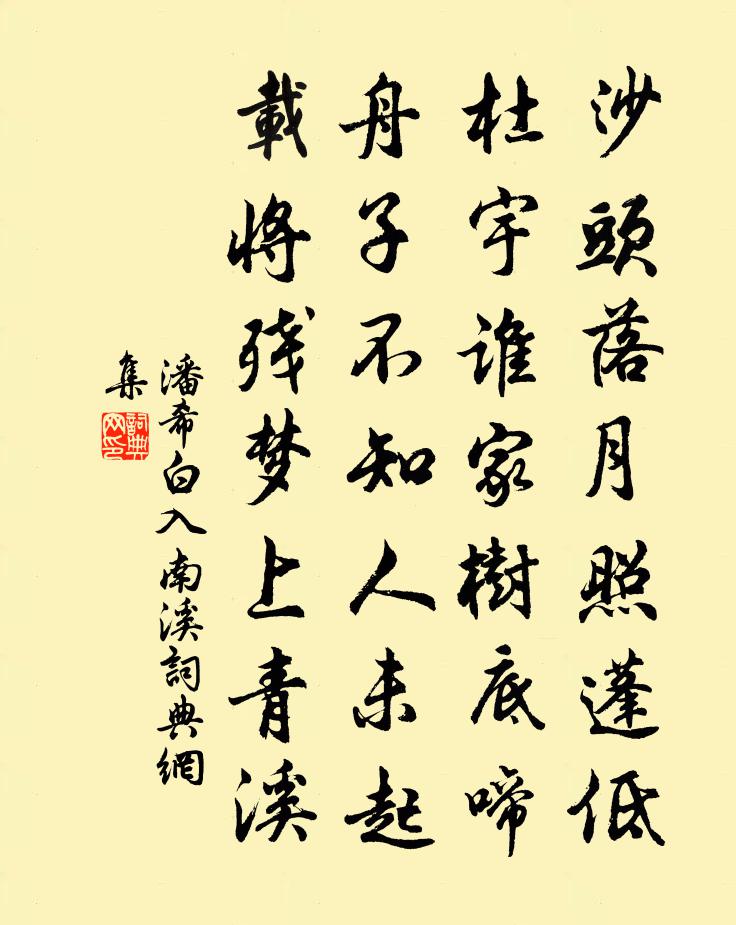 沙頭落月照蓬低
杜宇誰家樹底啼
舟子不知人未起
載將残梦上青溪
潘希白入南溪詞典網
集
詞典
网印